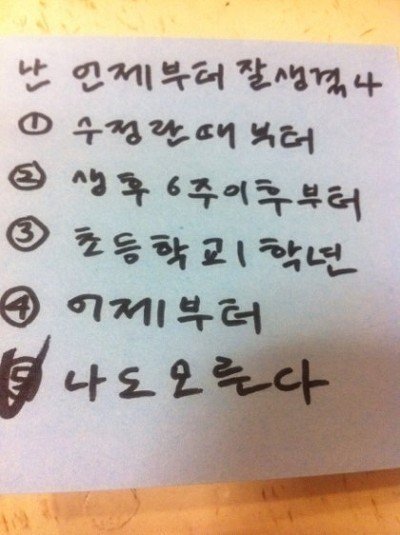 난 언제부터 잘생겼나
① 수정란때부터
② 생후 6주이후부터
③ 초등학교 1학년
④ 어제부터
⑤ 나도모른다